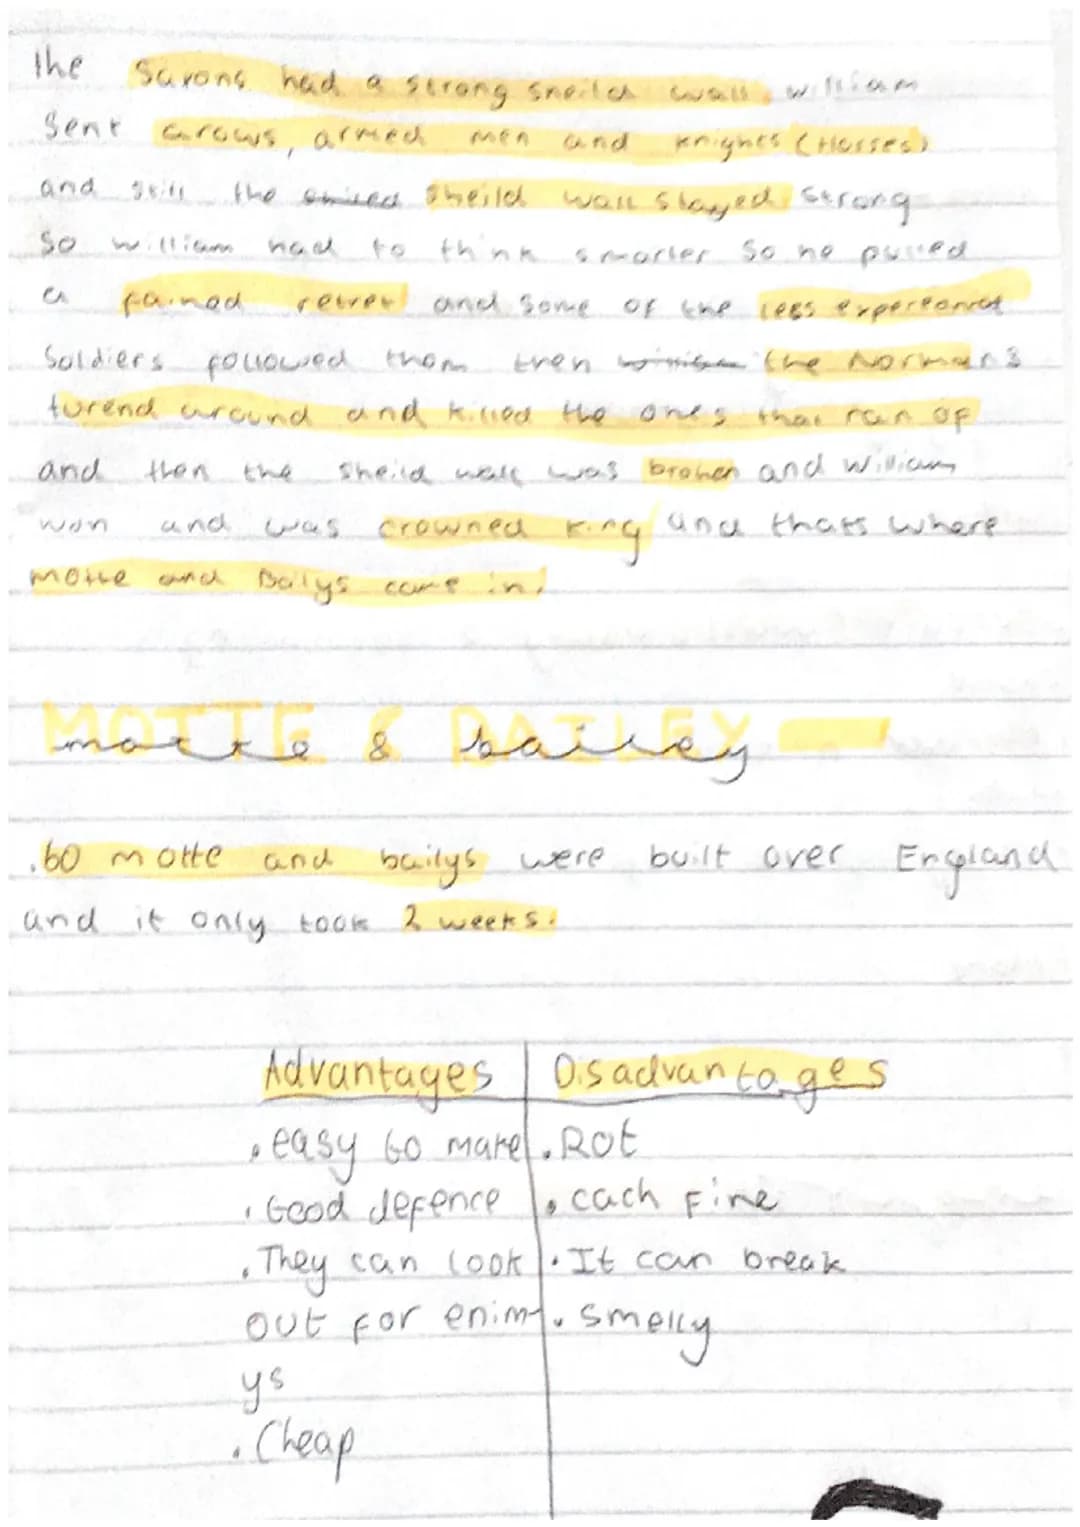 The Saxons had a strong sheild wall. william
Sent arows, armed men and knights (Horses)
and still the sheild wall stayed strong
So william had to think smarter so he pulled
a fained retret and some of the less expereonest
Soldiers followed them then the Normans
turend around and killed the ones that ran of
and then the sheild wall was broken and William
won and was crowned king and thats where
motte and Bailys came in.
MOTTE & BAILEY
motte & bailey
.60 motte and bailys were built over England
and it only took 2 weeks.
Advantages Disadvantages
.easy to make .Rot
.Good defence .cach Fire
.They can look .It can break
out for enim- .smelly
ys
.Cheap